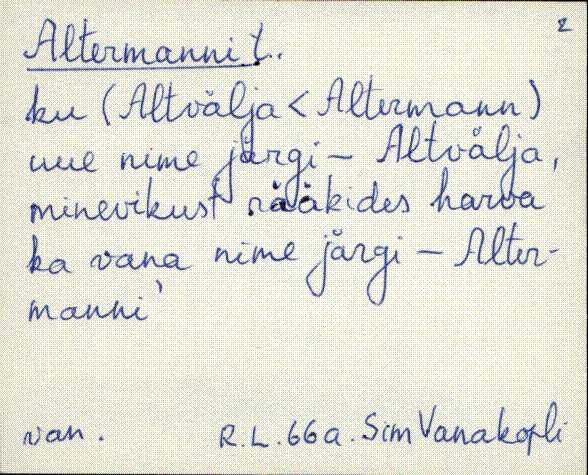 2
Altermanni t.
ku (Altvälja < Altermann)
uue nime järgi – Altvälja,
minevikust rääkides harva
ka vana nime järgi – Alter-
manni'
van. R.L. 66a. Sim Vanakopli